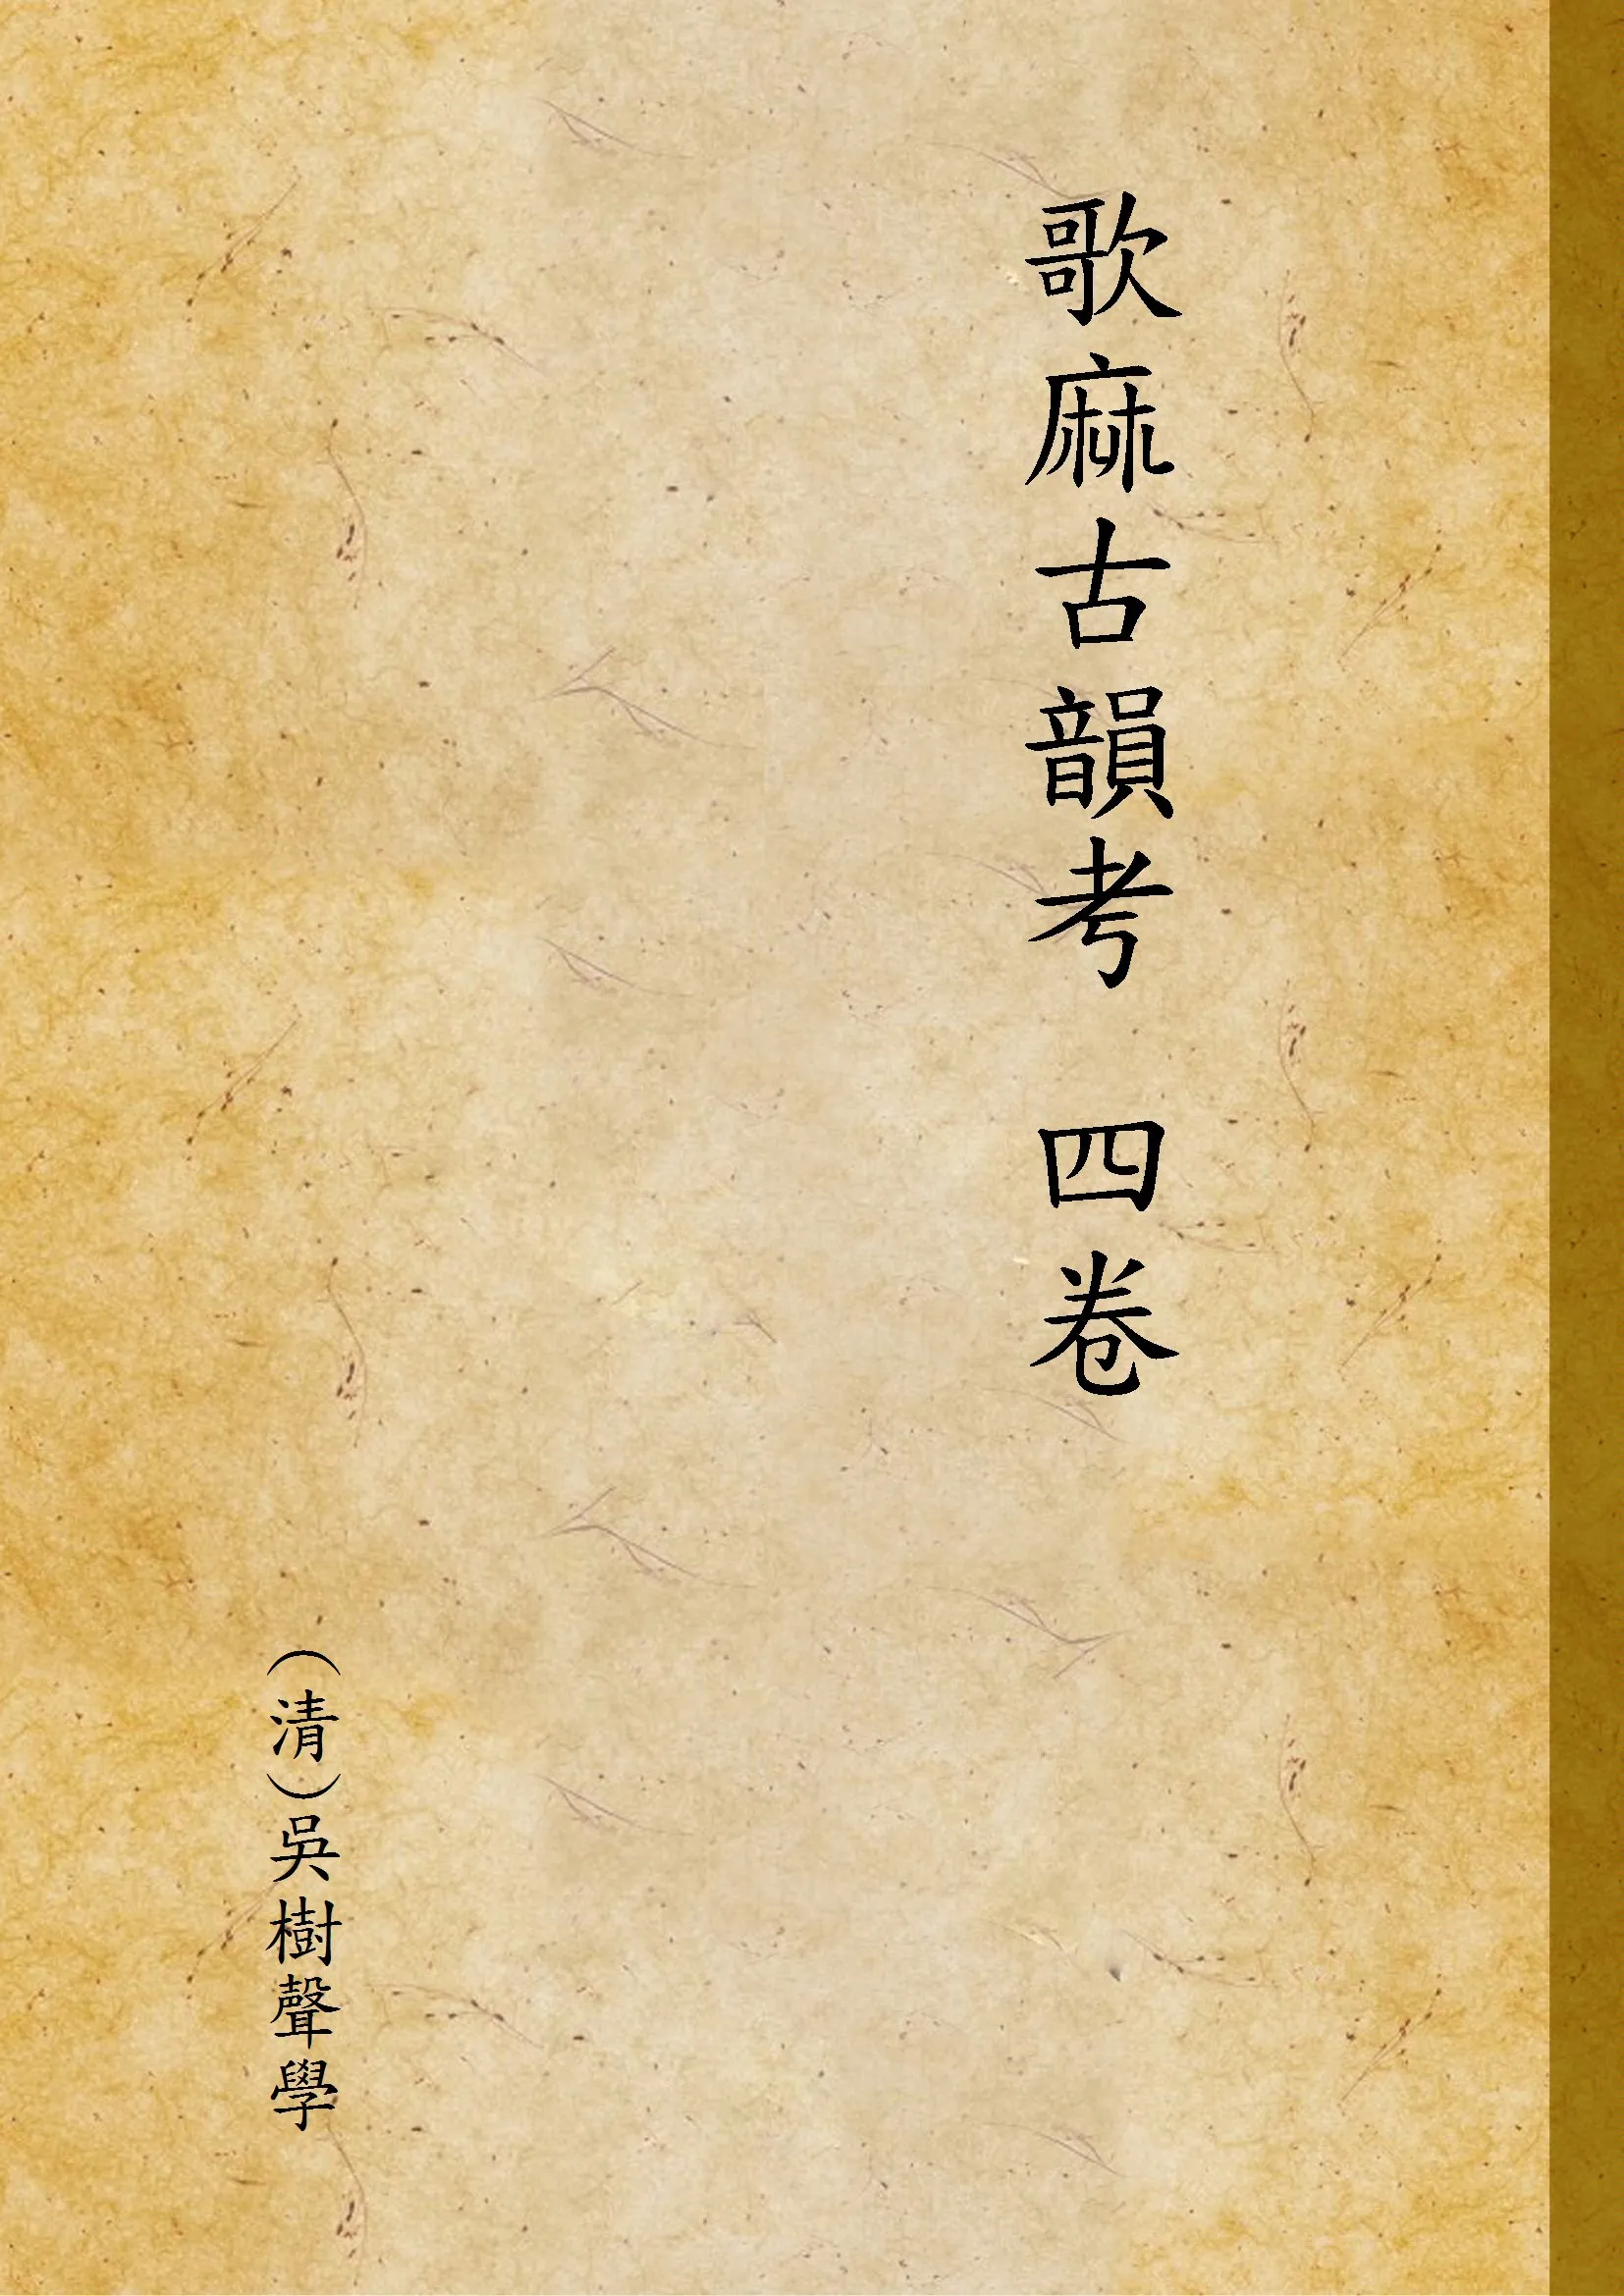 歌麻古韻考 四卷
（清）吳樹聲學